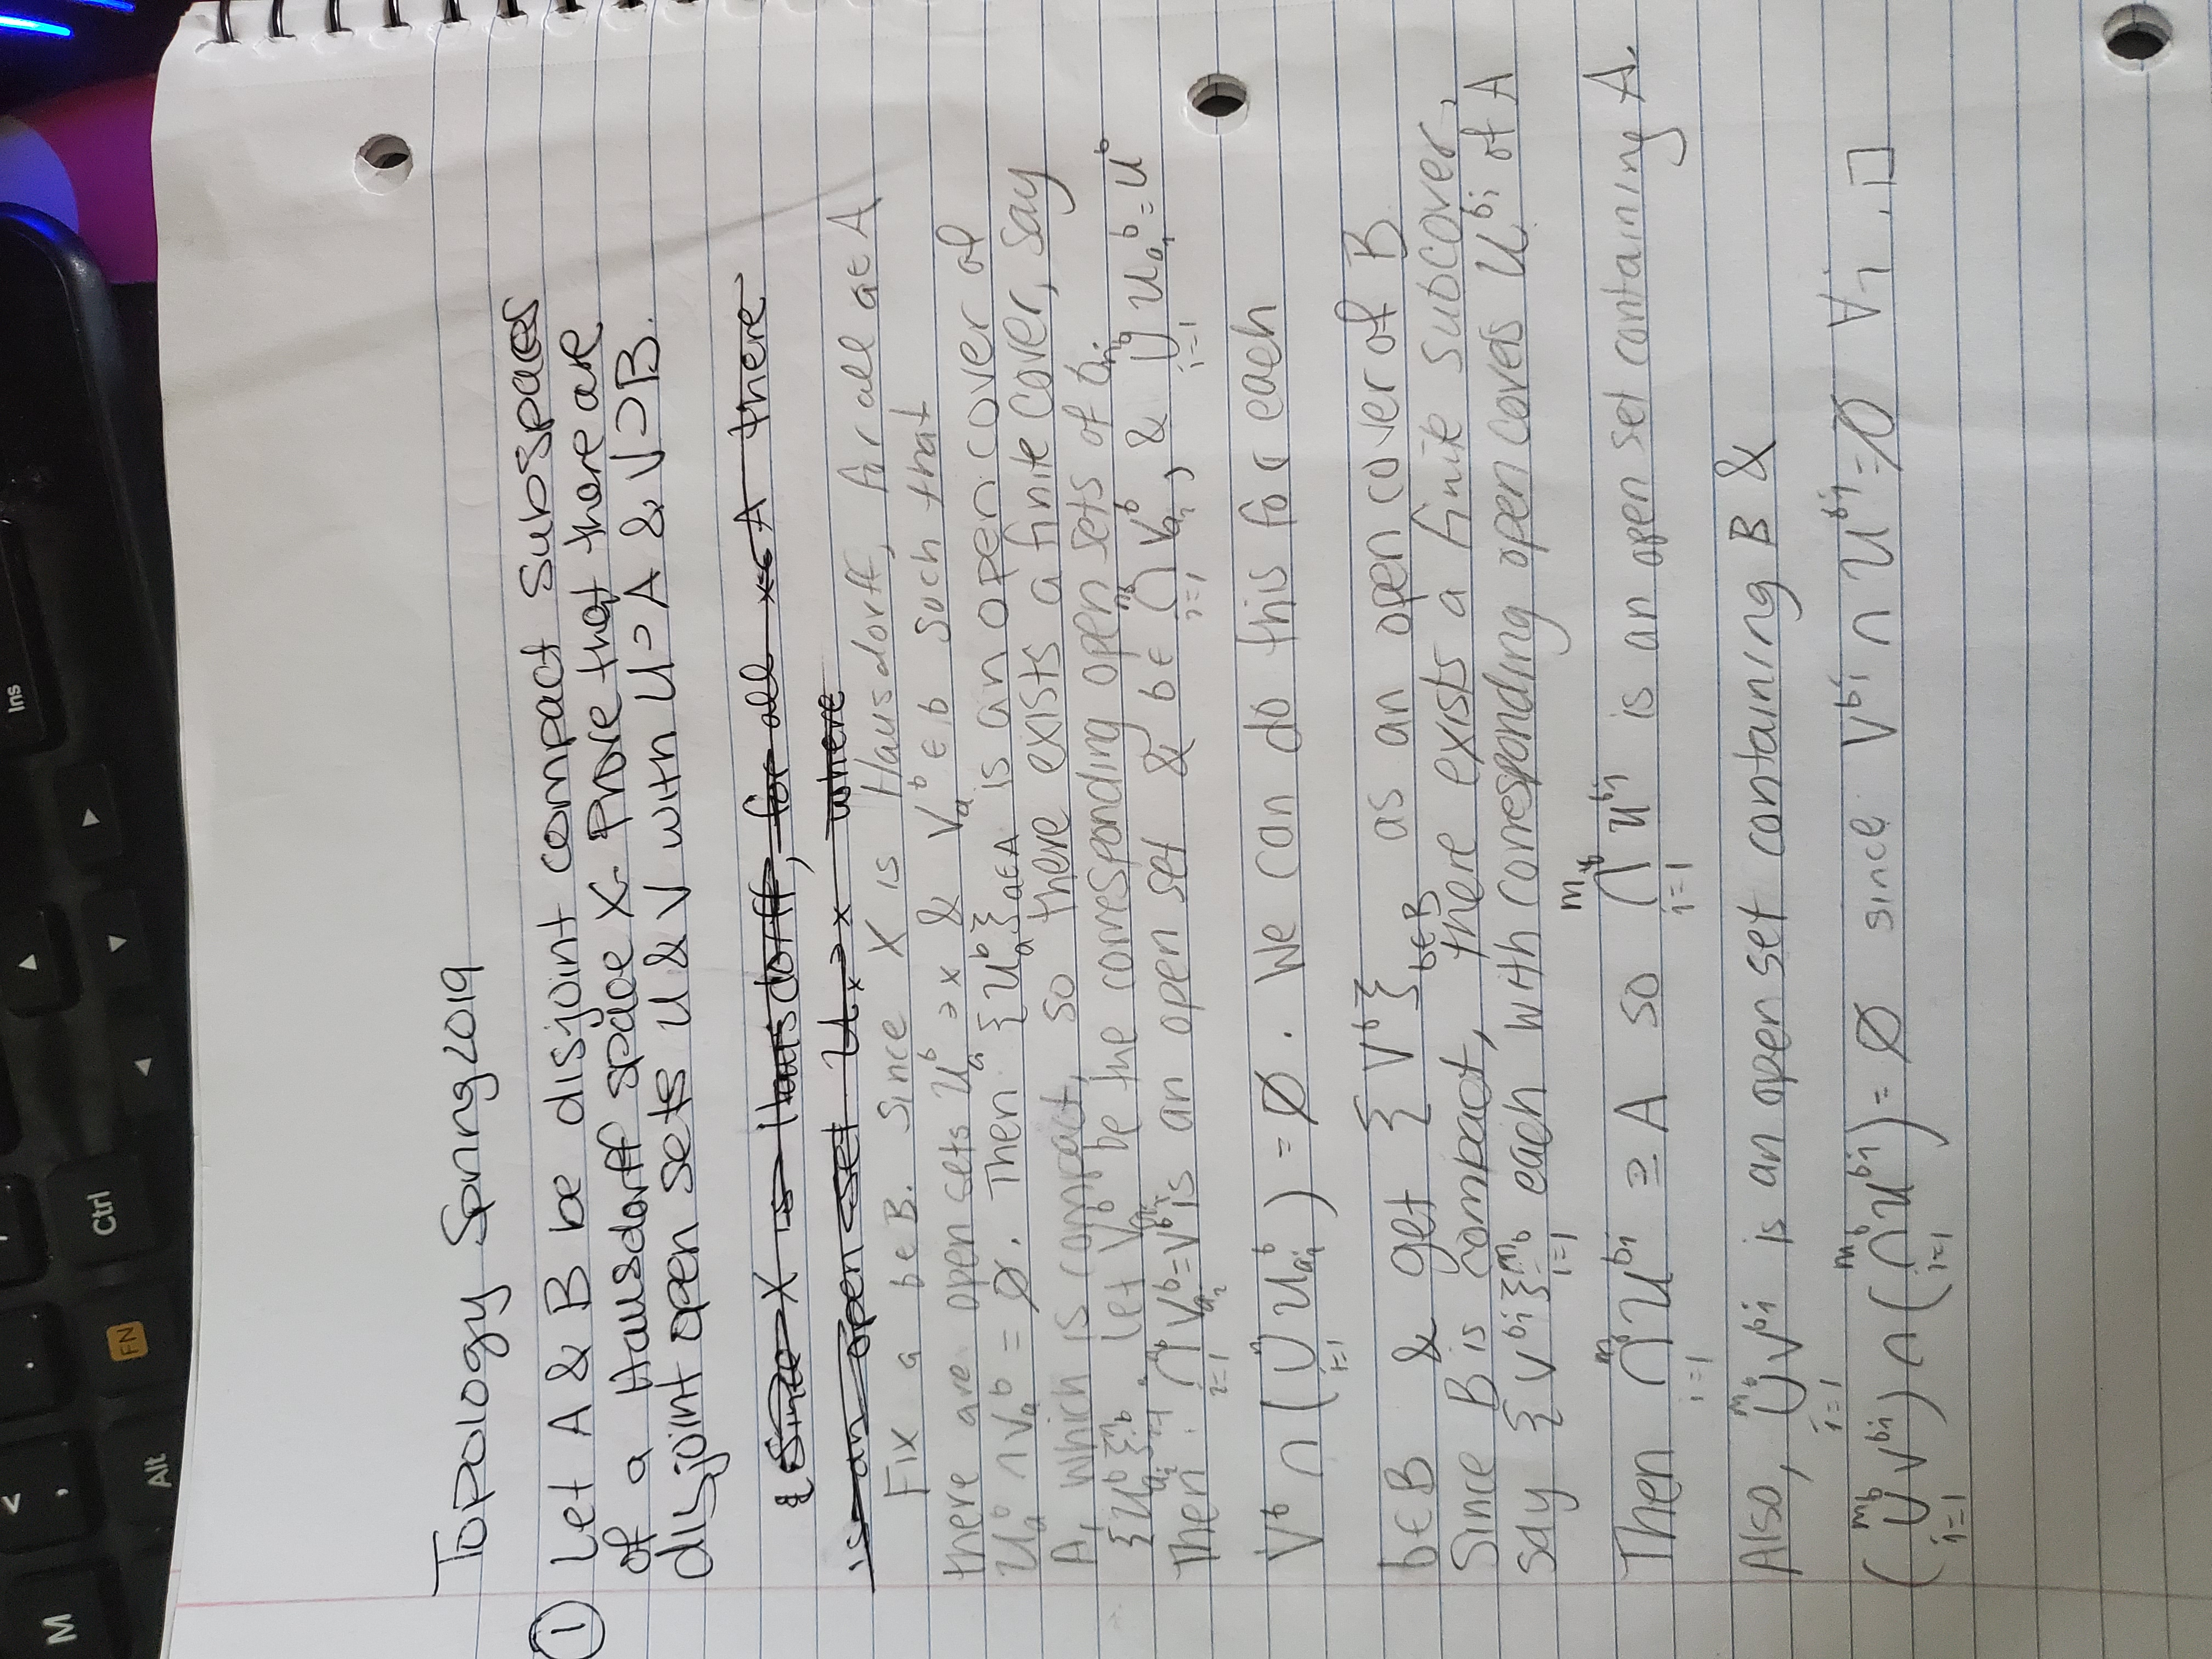 M
<
,
.
Alt
FN
Ctrl
Ins
Topology Spring 2019
① Let A & B be disjoint compact subspaces
of a Hausdorff space X. Prove that there are
disjoint open sets U & V with U ⊃ A & V ⊃ B.
Since X is Hausdorff, for all x ∈ A there
is an open set U_x ∋ x where
Fix a b ∈ B. Since X is Hausdorff, for all a ∈ A
there are open sets U_a^b ∋ x & V_a^b ∈ b such that
U_a^b ∩ V_a^b = ∅. Then {U_a^b}_{a∈A} is an open cover of
A, which is compact, so there exists a finite cover, say
{U_{a_i}^b}_{i=1}^{n_b}. Let V_{a_i}^b be the corresponding open sets of
Then ⋂_{i=1}^{n_b} V_{a_i}^b = V^b is an open set & b ∈ ⋂_{i=1}^{n_b} V_{a_i}^b, & ⋃_{i=1}^{n_b} U_{a_i}^b = U^b
V^b ∩ (⋃_{i=1}^{n} U_{a_i}^b) = ∅. We can do this for each
b ∈ B & get {V^b}_{b∈B} as an open cover of B
Since B is compact, there exists a finite subcover,
say {V^{b_i}}_{i=1}^{m_b} each with corresponding open covers U^{b_i} of A
Then ⋂_{i=1}^{m} U^{b_i} ⊇ A so ⋂_{i=1}^{m_b} U^{b_i} is an open set containing A.
Also, ⋃_{i=1}^{m_b} V^{b_i} is an open set containing B &
(⋃_{i=1}^{m_b} V^{b_i}) ∩ (⋂_{i=1}^{m_b} U^{b_i}) = ∅ since V^{b_i} ∩ U^{b_i} = ∅ ∀i. □